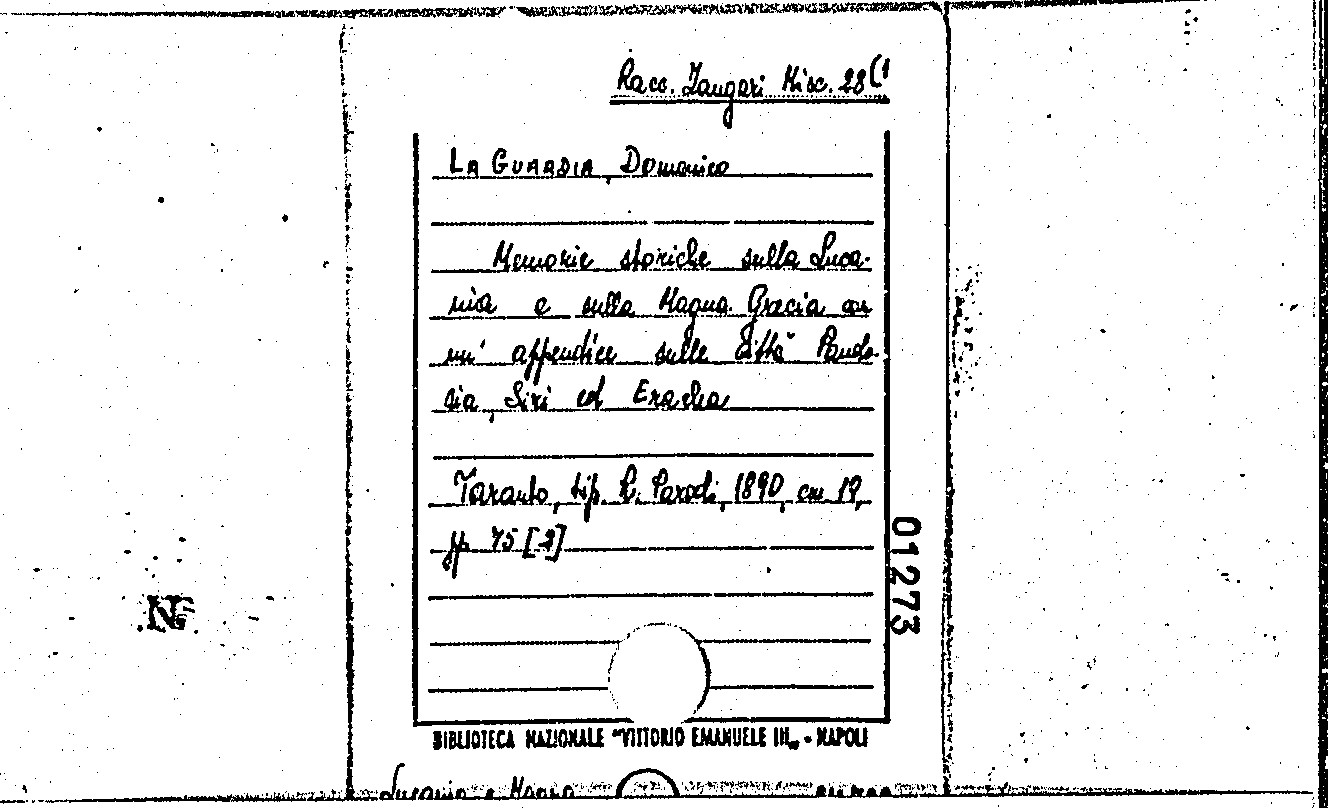 Racc. Zangari Misc. 28(1
LA GUARDIA, Domenico
Memorie storiche sulla Luca-
nia e sulla Magna Grecia con
un' appendice sulle Città Pando-
sia, Siri ed Eraclea
Taranto, tip. Parodi, 1890, cm 19,
pp. 75 [2]
01273
N
BIBLIOTECA NAZIONALE "VITTORIO EMANUELE III„ - NAPOLI
Lucania e Magna